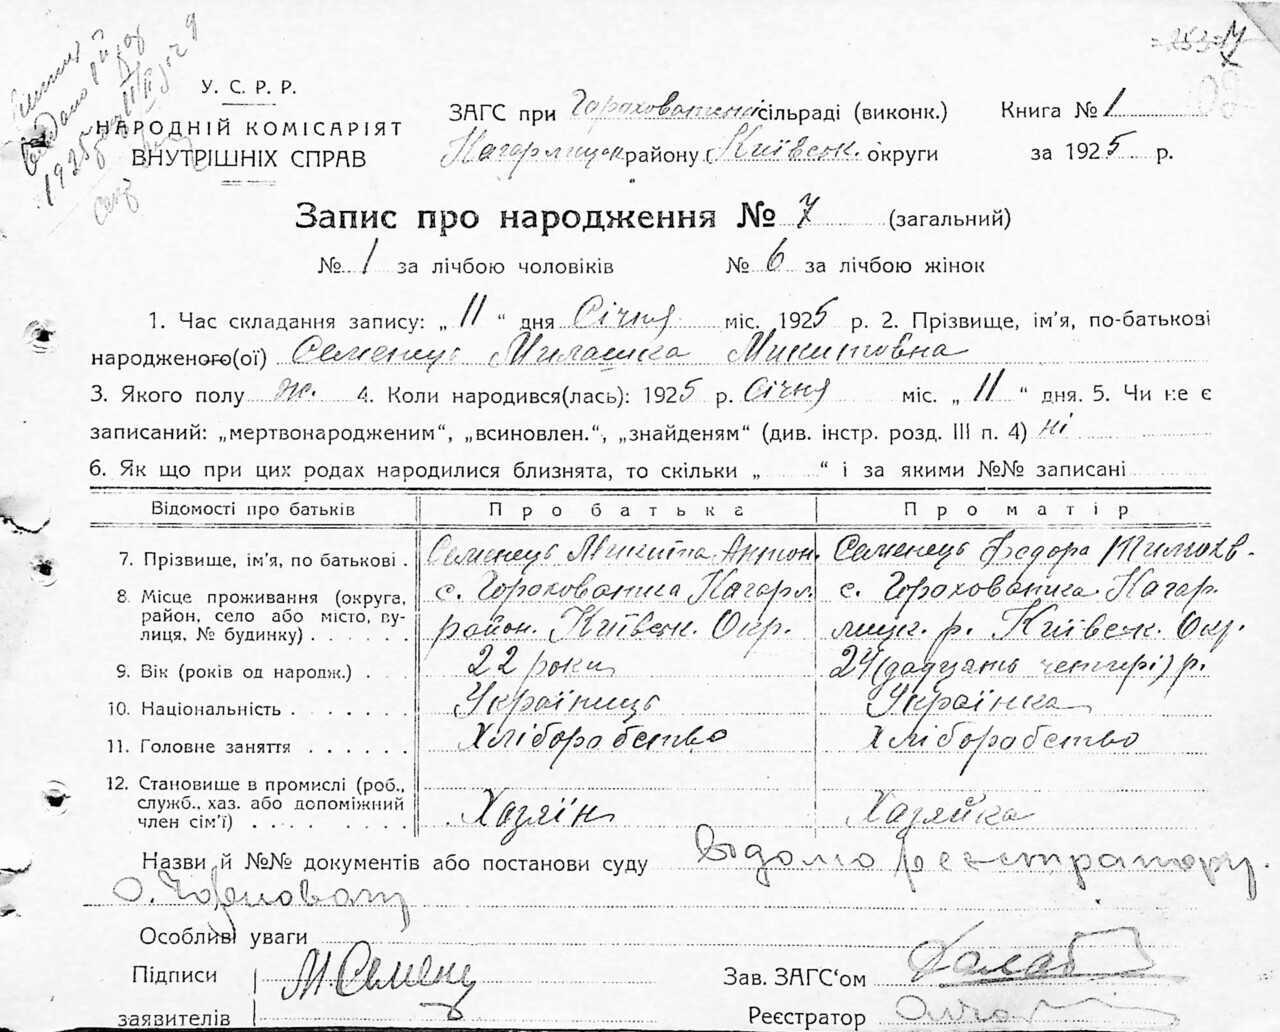 У. С. Р. Р.
НАРОДНІЙ КОМІСАРІЯТ
ВНУТРІШНІХ СПРАВ
ЗАГС при Горохованика сільраді (виконк.)
району Київськ. округи
Книга № 1
за 1925 р.
Запис про народження № 7 (загальний)
№ 1 за лічбою чоловіків № 6 за лічбою жінок
1. Час складання запису: „ 11 “ дня Січня міс. 1925 р. 2. Прізвище, ім’я, по-батькові
народженого(ої) Семенець Милашка Микитовна
3. Якого полу ж. 4. Коли народився(лась): 1925 р. Січня міс. „ 11 “ дня. 5. Чи не є
записаний: „мертвонародженим“, „всиновлен.“, „знайденям“ (див. інстр. розд. III п. 4) ні
6. Як що при цих родах народилися близнята, то скільки „ “ і за якими №№ записані
Відомості про батьків Про батька Про матір
7. Прізвище, ім’я, по батькові . Семенець Микита Антон. Семенець Федора Тимохв.
8. Місце проживання (округа, с. Горохованика Кагарл. с. Горохованика Кагар.
район, село або місто, ву- район. Київськ. Окр. лицк. р. Київськ. Окр.
лиця, № будинку) . . . . .
9. Вік (років од народж.) . 22 роки 24 (дадцать четирі) р.
10. Національність . . . . . . Українець Українка
11. Головне заняття . . . . . . Хліборобство Хліборобство
12. Становище в промислі (роб.,
служб., хаз. або допоміжний Хазяїн Хазяйка
член сім’ї) . . . . . . . .
Назви й №№ документів або постанови суду Відомо реєстратору
Особливі уваги
Підписи М Семенец Зав. ЗАГС‘ом
заявителів Реєстратор